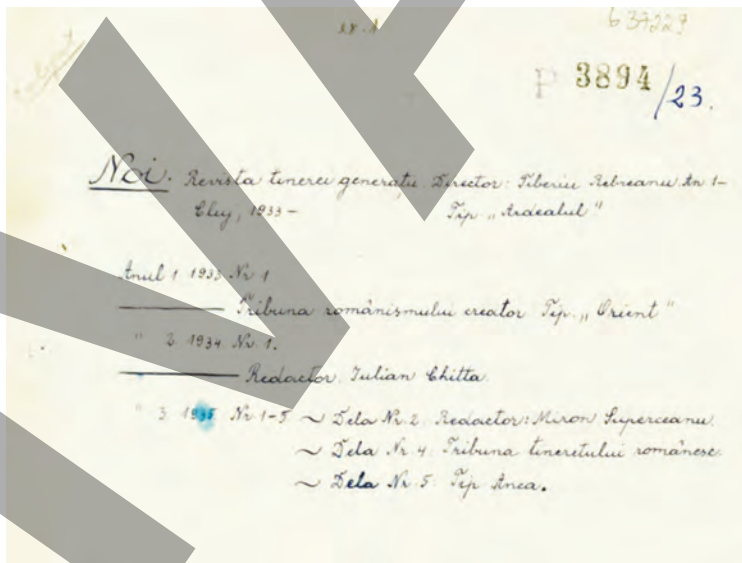 28.1
637229
P 3894/23.
Noi. Revista tinerei generații Director: Tiberiu Rebreanu An 1-
Cluj, 1933 – Tip. „Ardealul"
Anul 1 1933 Nr 1
——— Tribuna românismului creator Tip. „Orient"
" 2. 1934. Nr. 1.
——— Redactor. Iulian Chitta.
" 3 1935 Nr 1-5 ~ Dela Nr 2. Redactor: Miron Superceanu.
~ Dela Nr 4. Tribuna tineretului românesc.
~ Dela Nr 5. Tip Anca.